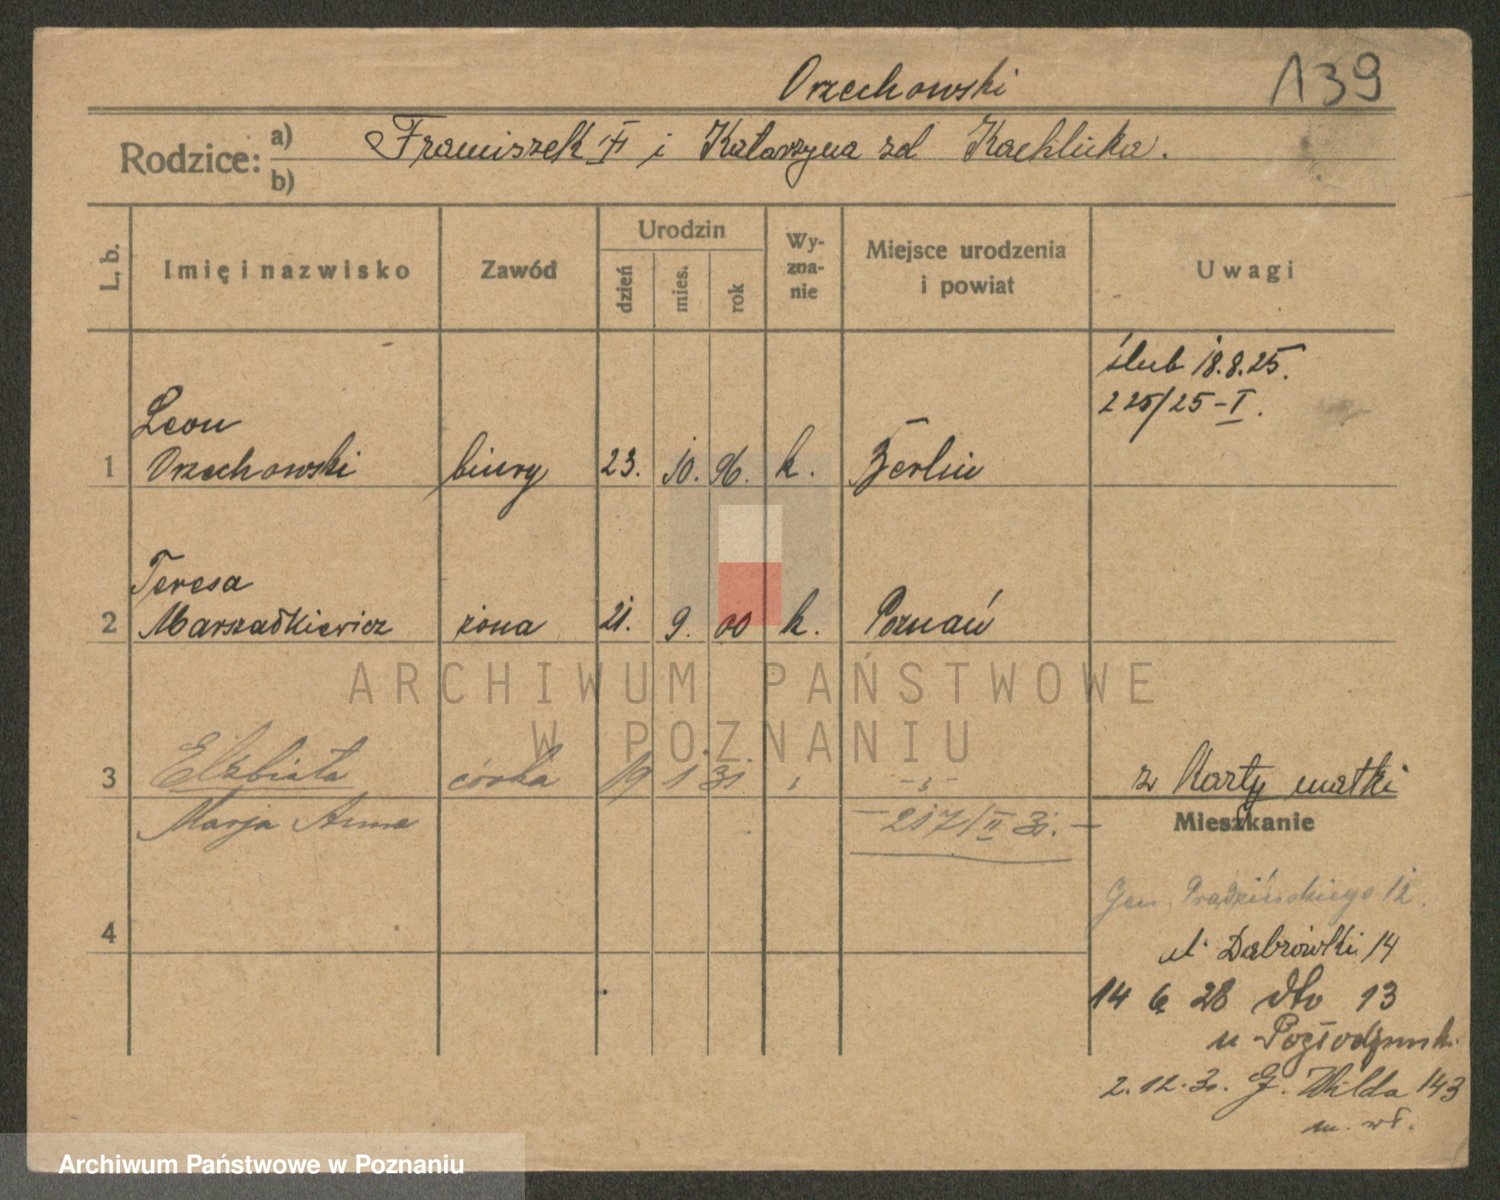 Orzechowski 139
Rodzice: a) Franciszek i Katarzyna zd Kachlicka.
b)
L. b. Imię i nazwisko Zawód Urodzin dzień mies. rok Wyzna-nie Miejsce urodzenia i powiat Uwagi
ślub 18.8.25.
225/25-I.
Leon
1 Orzechowski biury 23. 10. 96. k. Berlin
Teresa
2 Marszałkiewicz żona 21. 9. 00 k. Poznań
ARCHIWUM PAŃSTWOWE
W POZNANIU
3 Elżbieta córka 19 1 31 z Karty matki
Marja Anna - 217/II 31. -
Mieszkanie
Gen. Prądzińskiego 12.
4
ul. Dąbrówki 14
14 6 28 dto 13
u
2.12.30. G. Wilda 143
m. wł.
Archiwum Państwowe w Poznaniu